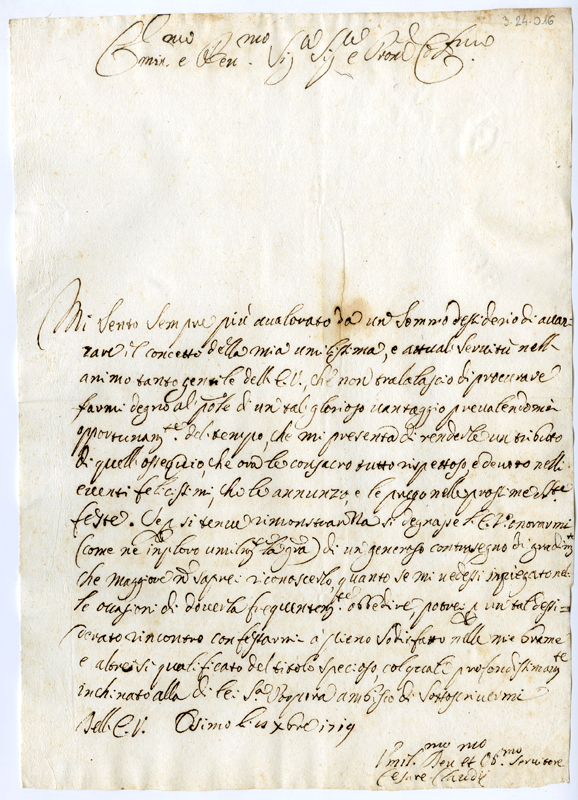 3-24-316
Em.mo e Rev.mo Sig.re Sig.re e Pron.
Mi sento sempre più avalorato da un sommo desiderio di avan-
zare il concetto della mia umilissima, e attual servitù nell'
animo tanto gentile dell'E.V., che non tralascio di procurare
farmi degno al pole di un tal glorioso vantaggio prevalendomi
opportunam.te del tempo, che mi presenta di renderle un tributo
di quell'ossequio, che ora le consacro tutto rispettoso, e devoto nell'
eventi felicissimi, che le annunzo, e le prego nelle prossime S.te
feste. Se p si tenue rimostranza si degnasse l'E.V. onorarmi
(come ne imploro umilm. la gra) di un generoso contrasegno di gradim.to
che maggiore n saprei riconoscerlo, quanto se mi vedessi impiegato nel-
le occasioni di doverla frequentem.te obbedire, potrei p un tal desi-
derato rincontro confessarmi a pieno sodisfatto nelle mie brame
e altresi qualificato del titolo specioso, col quale profondissimam.te
inchinato alla di lei Sa. Porpora ambisco di sottoscrivermi
Dell'E.V. Osimo li Xbre 1719
Umil. Dev. et Ob.mo Servitore
Cesare Claudi